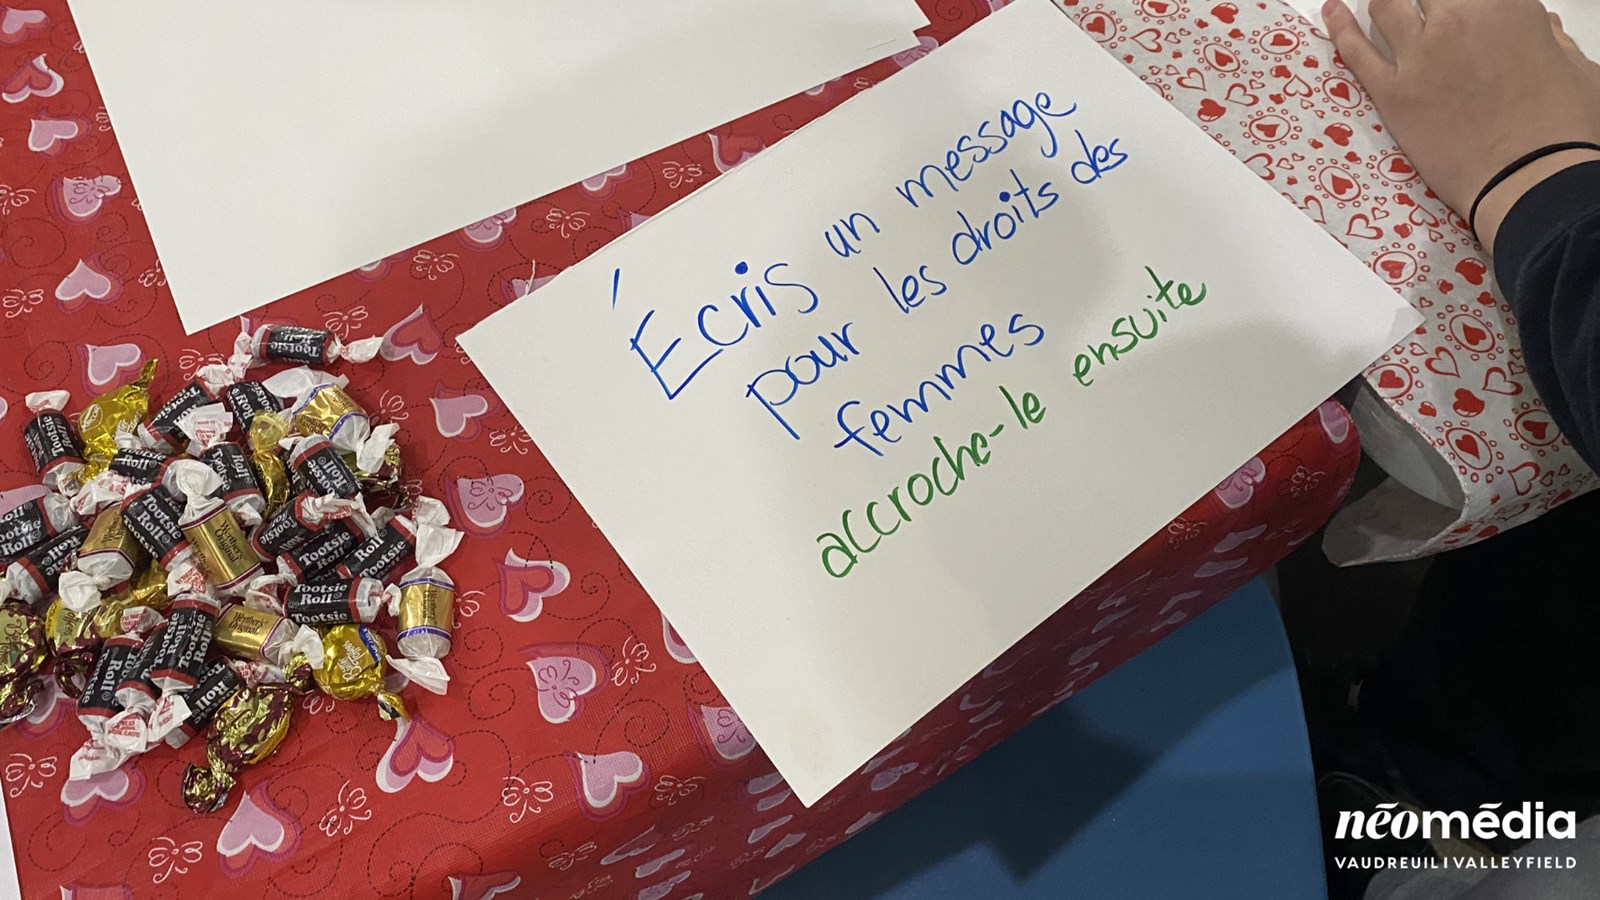 Écris un message
pour les droits des
femmes
accroche-le ensuite
Tootsie
Roll
Tootsie
Roll
Tootsie
Roll
Tootsie
Roll
Tootsie
Werther's
Original
Werther's
Original
néomédia
VAUDREUIL | VALLEYFIELD